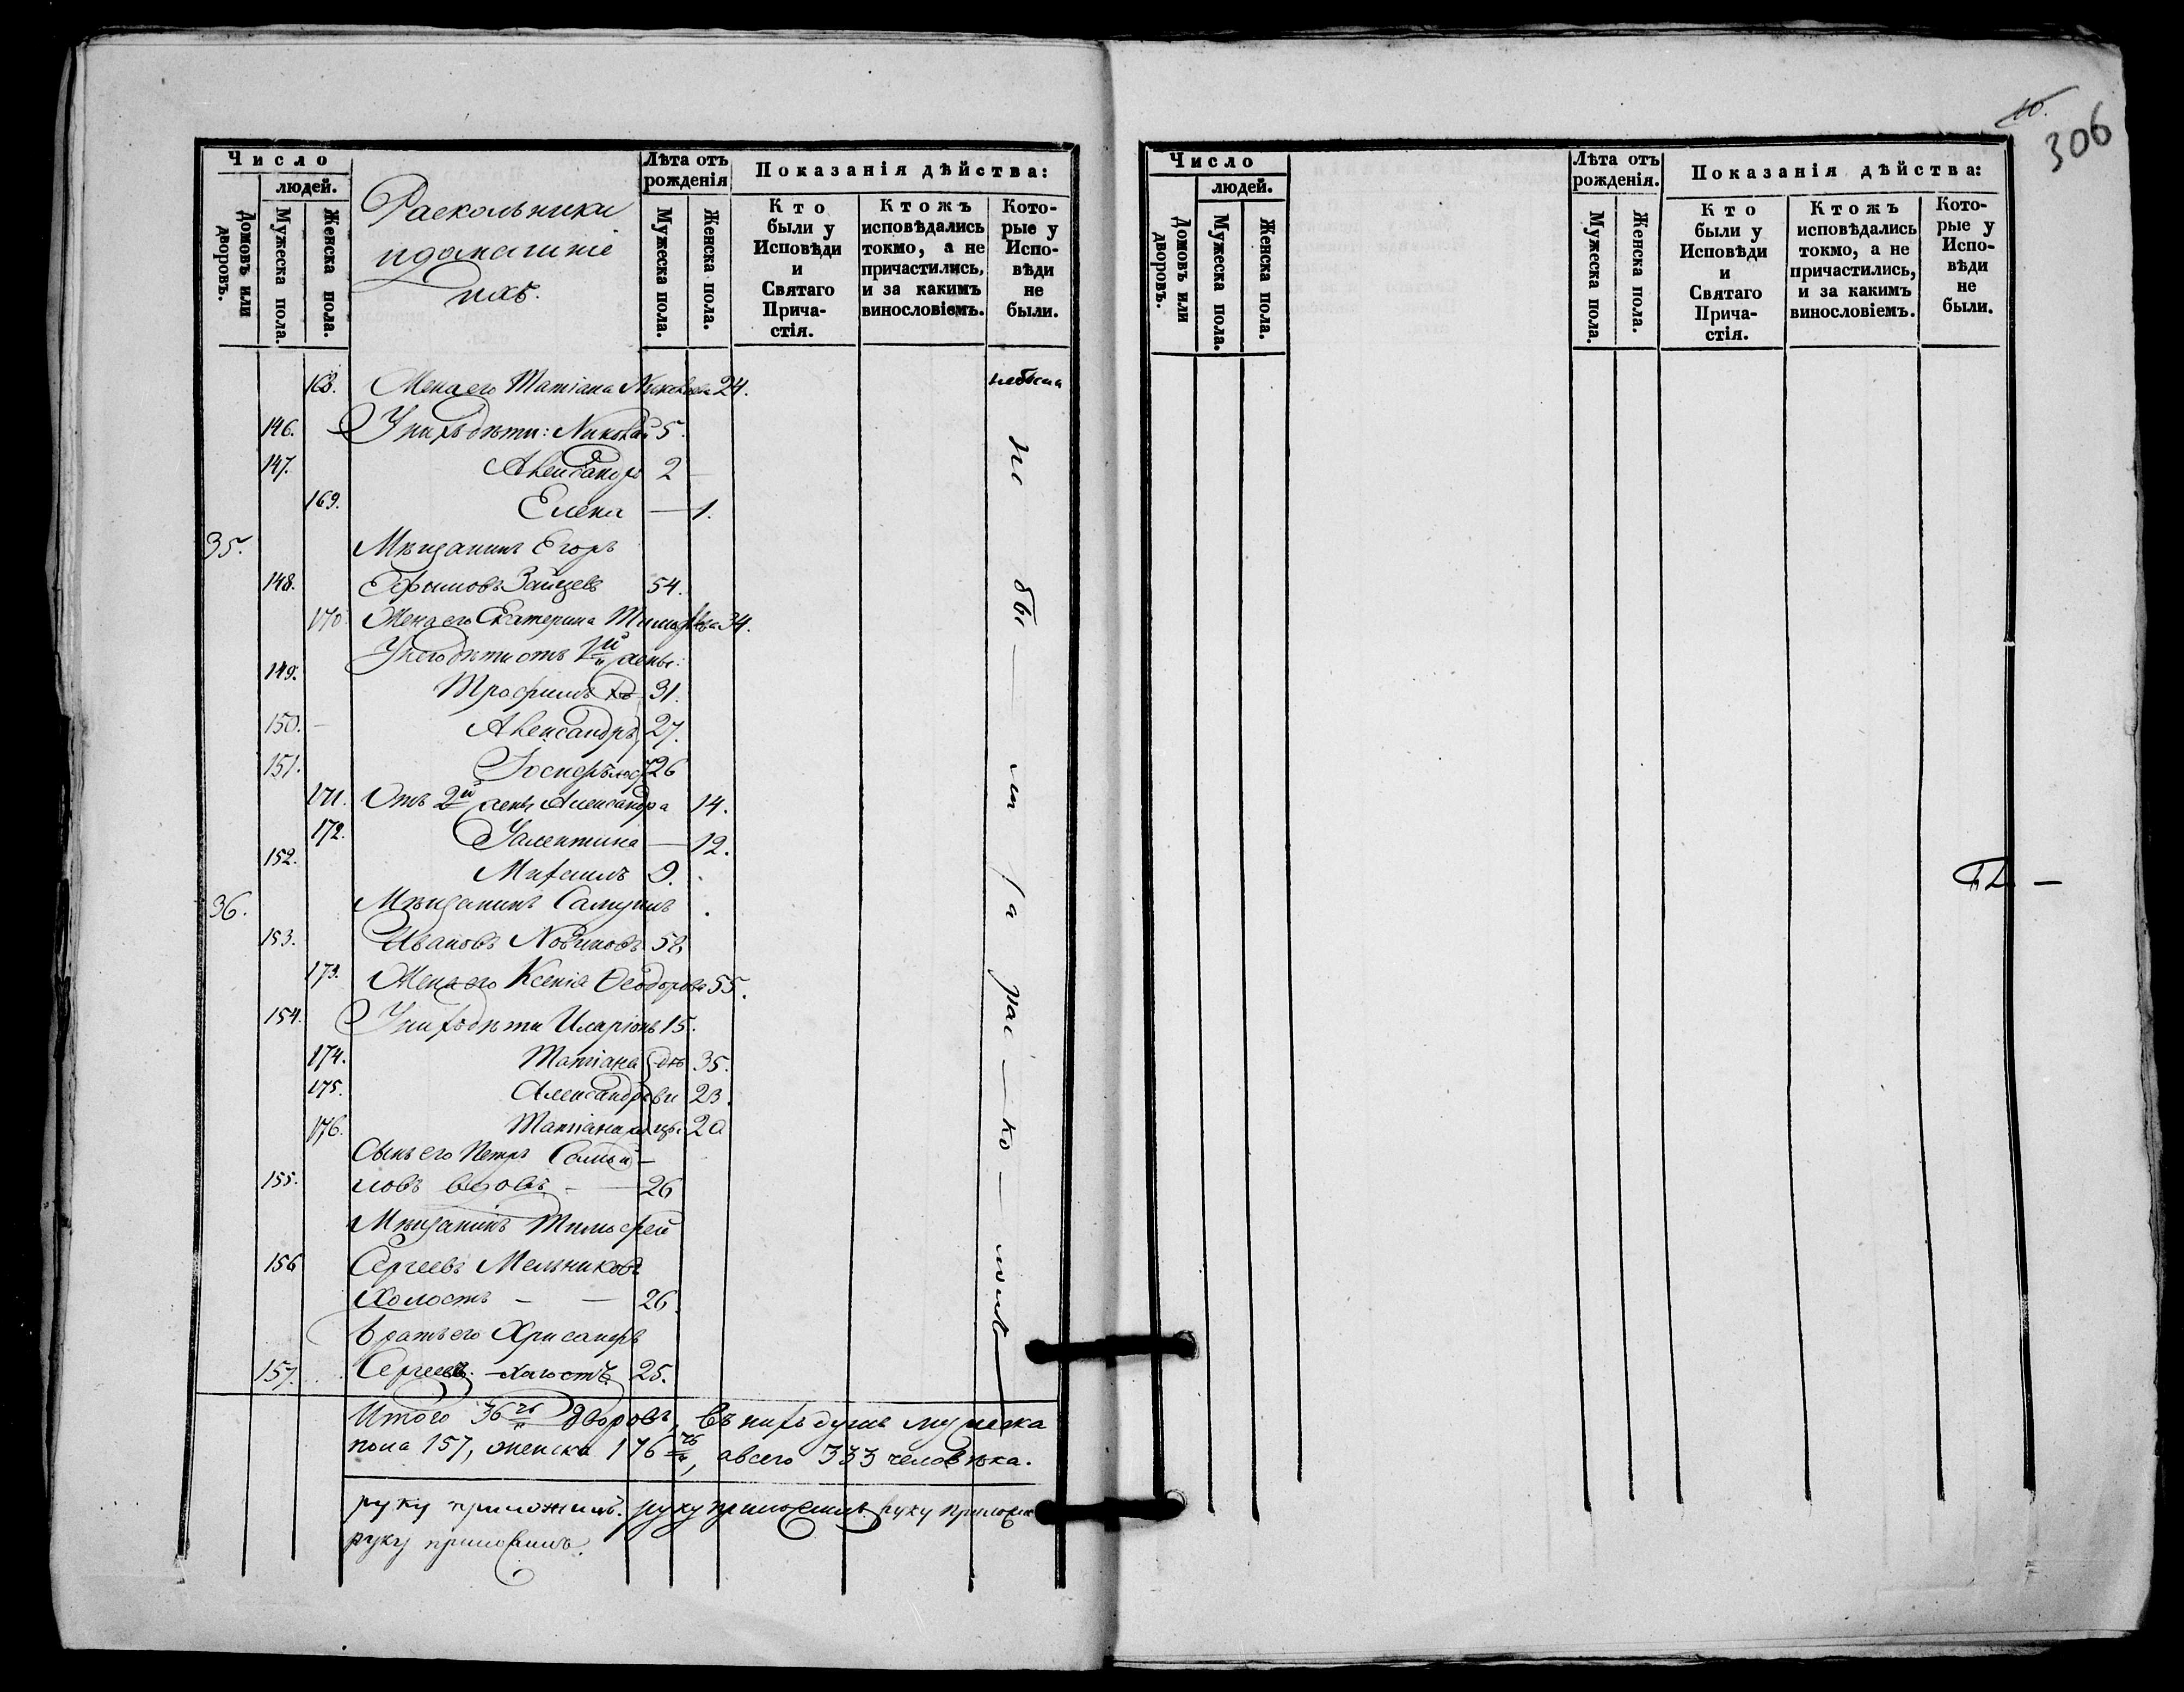 Число
людей.
Домовъ или дворовъ.
Мужеска пола.
Женска пола.
Раскольники
и домашніе
ихъ.
Лѣта отъ рожденія
Мужеска пола.
Женска пола.
Показанія дѣйства:
Кто были у Исповѣди и Святаго Прича-стія.
Ктожъ исповѣдались токмо, а не причастились, и за какимъ винословіемъ.
Кото-рые у Испо-вѣди не были.
168. Жена его Татіана 24.
146. У нихъ дѣти: Николай 5.
147. Александръ 2 —
169. Елена — 1.
35. Мѣщанинъ Егоръ
148. Ефимовъ Зайцевъ 54.
170 Жена его Екатерина 34.
У него дѣти отъ 1й жены:
149. Трофимъ 31.
150. — Александръ 27.
151. Іосифъ 26
171. Отъ 2й жены Александра 14.
172. Валентина — 12.
152. Михаилъ 9.
36. Мѣщанинъ Самуилъ
153. Ивановъ Новиковъ 58
173. Жена его Ксенія Ѳеодорова 55.
154. У нихъ дѣти Иларіонъ 15.
174. Татіана 35.
175. Александра 23.
176. Татіана 20
Сынъ его Петръ Самуй-
155. ловъ вдовъ — — 26
Мѣщанинъ Тимофей
156 Сергеевъ Мельниковъ
Холостъ — — 26.
Братъ его Хрисанфъ
157. Сергеевъ — холостъ 25.
не бы — ли за рас — ко — ломъ
Итого 36ть дворовъ, въ нихъ душъ мужеска
пола 157, женска 176ть, а всего 333 человѣка.
руку приложилъ. руку приложилъ. руку приложилъ
руку приложилъ.
10.
306
Число
людей.
Домовъ или дворовъ.
Мужеска пола.
Женска пола.
Лѣта отъ рожденія.
Мужеска пола.
Женска пола.
Показанія дѣйства:
Кто были у Исповѣди и Святаго Прича-стія.
Ктожъ исповѣдались токмо, а не причастились, и за какимъ винословіемъ.
Кото-рые у Испо-вѣди не были.